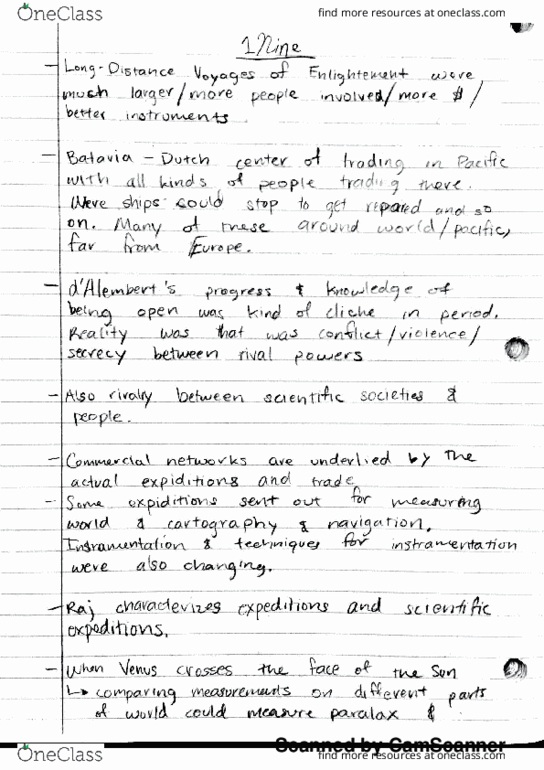 OneClass
find more resources at oneclass.com
1 Nine
- Long-Distance Voyages of Enlightement were
much larger/more people involved/more $/
better instruments.
- Batavia - Dutch center of trading in Pacific
with all kinds of people trading there.
Were ships could stop to get repared and so
on. Many of these around world/pacific,
far from Europe.
- d'Alembert's progress & knowledge of
being open was kind of cliche in period.
Reality was that was conflict/violence/
secrecy between rival powers
- Also rivalry between scientific societies &
people.
- Commercial networks are underlied by the
actual expiditions and trade
- Some expiditions sent out for measuring
world & cartography & navigation.
Instramentation & techniques for instramentation
were also changing.
- Raj characterizes expeditions and scientific
expeditions.
- When Venus crosses the face of the Sun
↳ comparing measurements on different parts
of world could measure paralax &
Scanned by CamScanner
OneClass
find more resources at oneclass.com